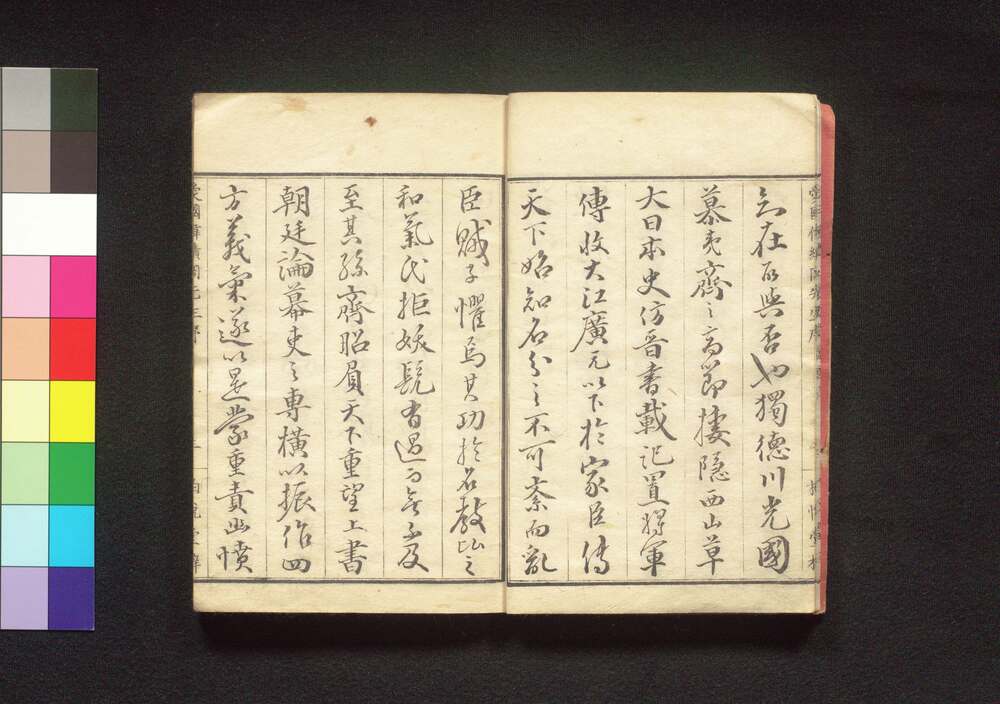 之在所與否也獨德川光國
慕夷齊之高節摟隱西山草
大日本史仿晋書載記置將軍
傳收大江廣元以下於家臣傳
天下始知名分之不可紊而亂
臣賊子懼焉其功於名教比之
和氣氏拒妖髡有過而無不及
至其孫齊昭負天下重望上書
朝廷論幕吏之專橫以振作四
方義氣遂以是蒙重責幽憤